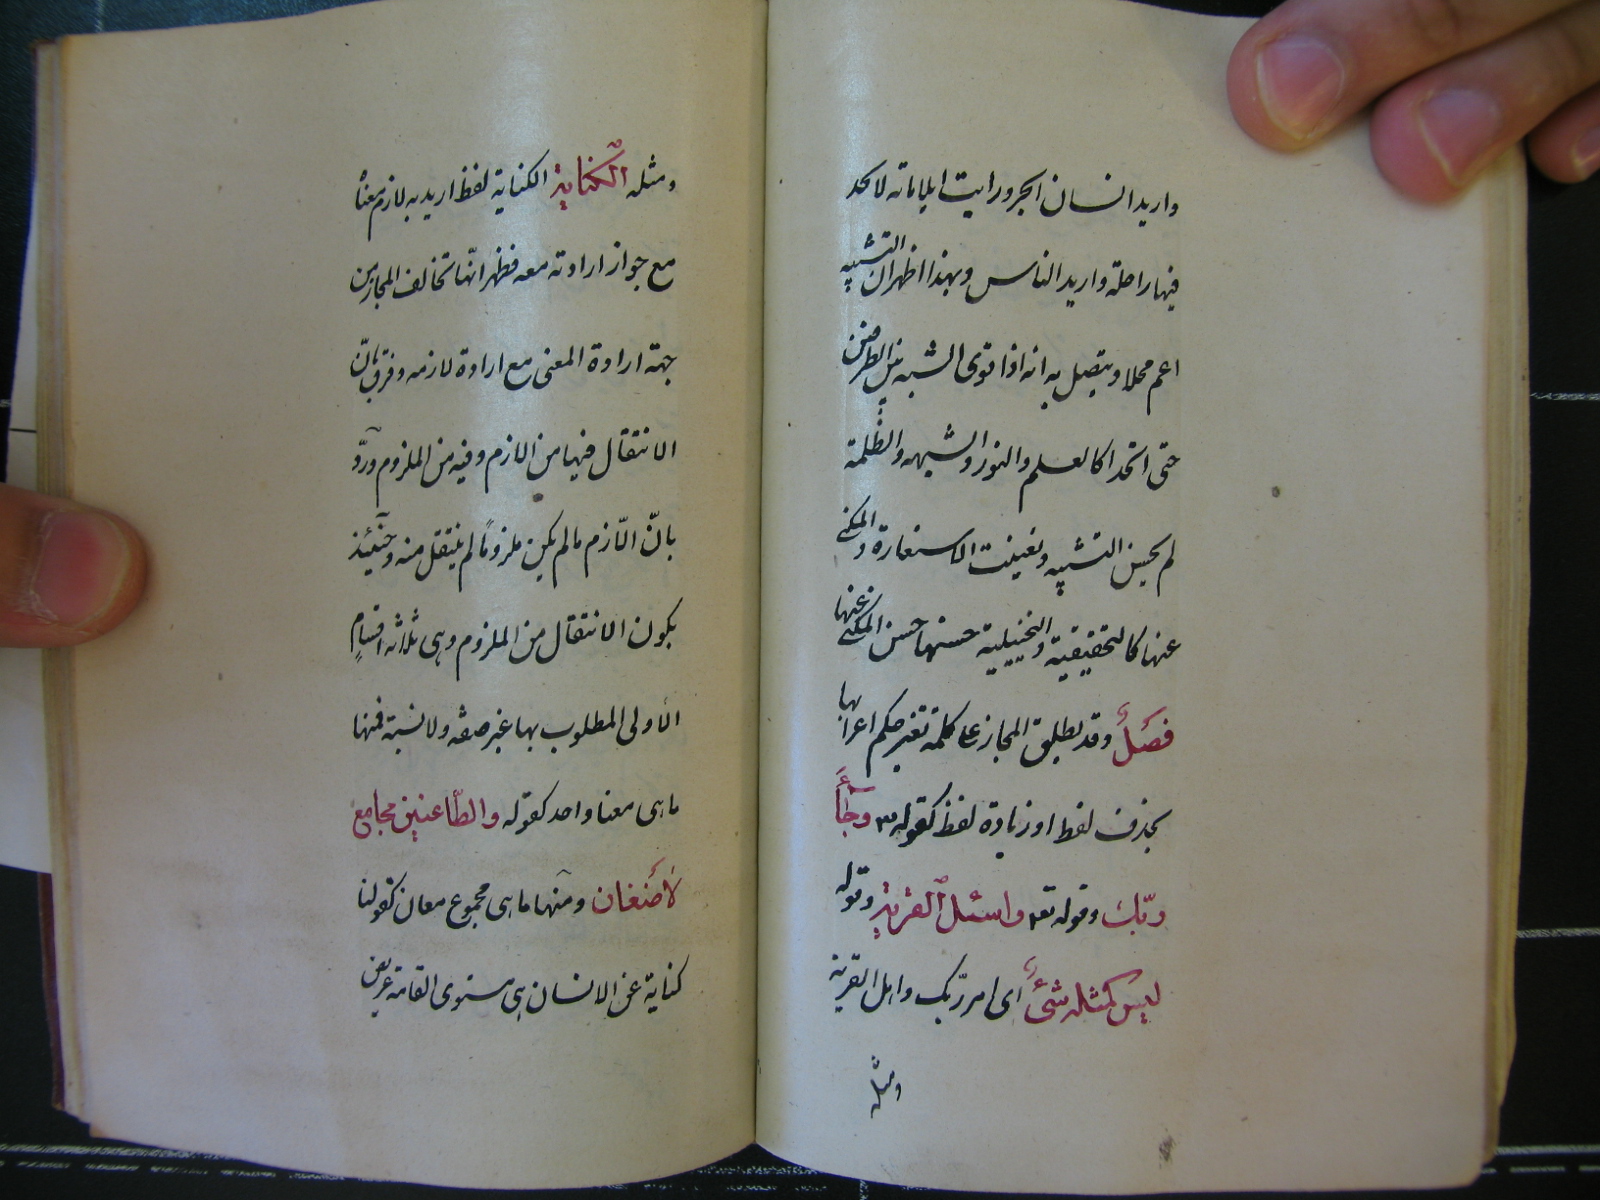 واريد انسان الجرور ايت ابلا ماته لا تحد
فيها راحلة واريد الناس وبهذا اظهر ان التشبيه
اعم محلا ويتصل به انه اذا قوى الشبه بين الطرفين
حتى اتحدا كالعلم والنور والشبهه والظلمة
لم يحسن التشبيه وتعينت الاستعارة والمكنى
عنها كالتحقيقية والتخييلية حسنها حسن المكنى عنها
فصل وقد يطلق المجاز على كلمة تغير حكم اعرابها
بحذف لفظ او زيادة لفظ كقوله تع وجاء
ربك وقوله تع واسئل القرية وقوله
ليس كمثله شئ اى امر ربّك واهل القرية
ومثله
ومثله الكناية الكناية لفظ اريد به لازم معناه
مع جواز ارادته معه فظهر انّها تخالف المجاز من
جهة ارادة المعنى مع ارادة لازمه وفرق بانّ
الانتقال فيها من الازم وفيه من الملزوم وردّ
بانّ الّازم مالم يكن ملزومًا لم ينتقل منه وحينئذ
يكون الانتقال من الملزوم وهى ثلاثه اقسام
الاولى المطلوب بها غير صفة ولا نسبة فمنها
ماهى معنا واحد كقوله والطّاعنين مجامع
لاضغان ومنها ماهى مجموع معان كقولنا
كناية عن الانسان هى مستوى القامة عريض